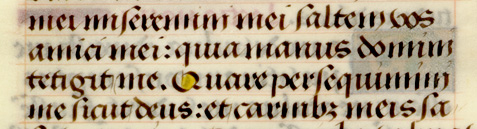 mei miseremini mei saltem vos
amici mei: quia manus domini
tetigit me. Quare persequimini
me sicut deus: et carnibꝫ meis sa